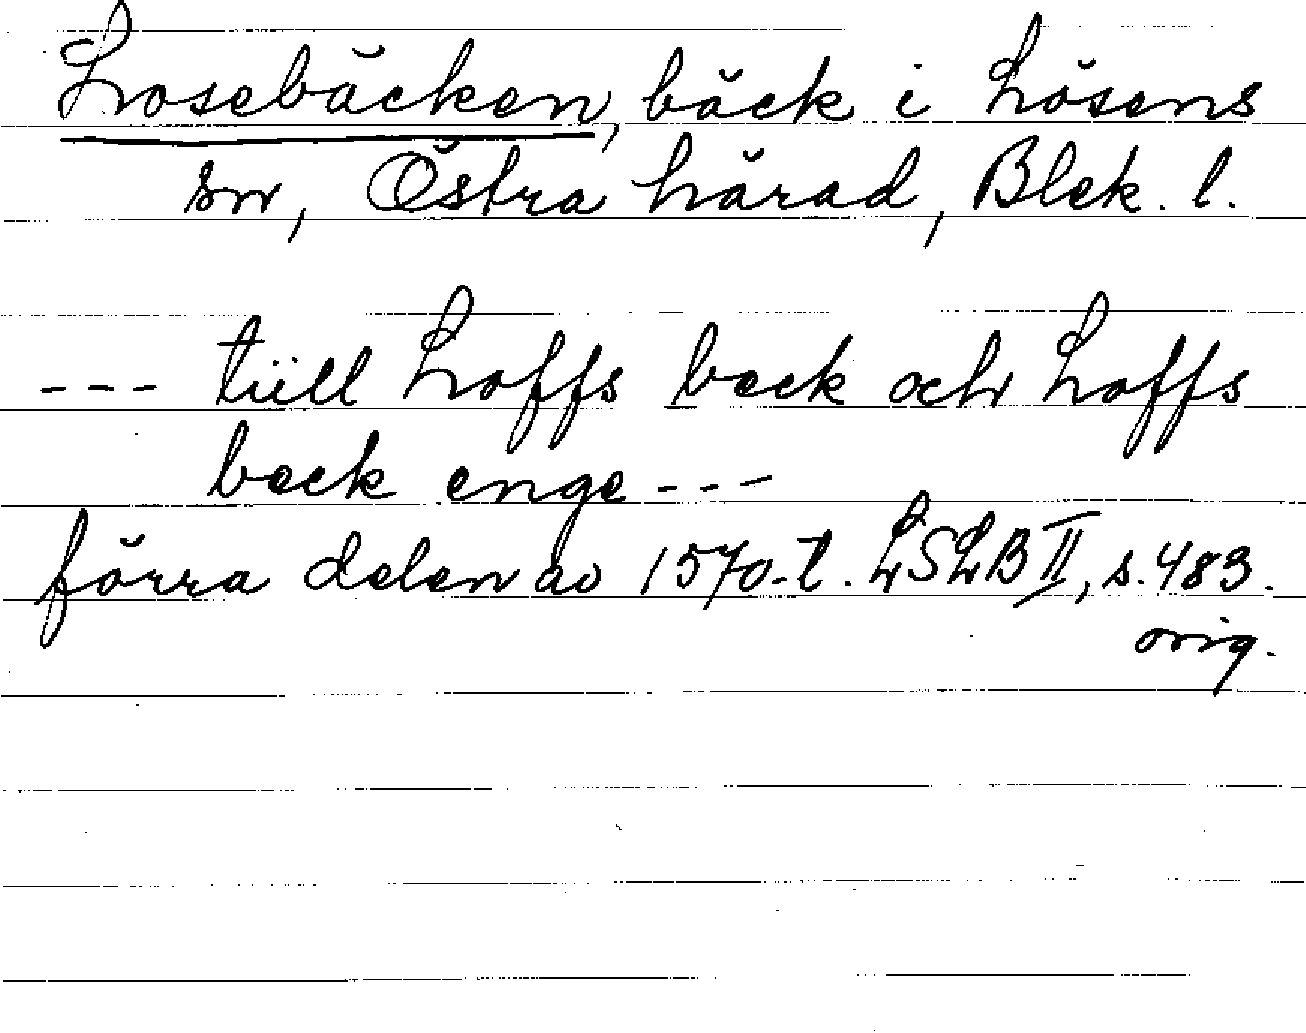 Losebäcken, bäck i Lösens
sn, Östra härad, Blek. l.
--- tüll Loffs beck och Loffs
beck enge ---
förra delen av 1570-t. LSLB II, s. 483.
orig.